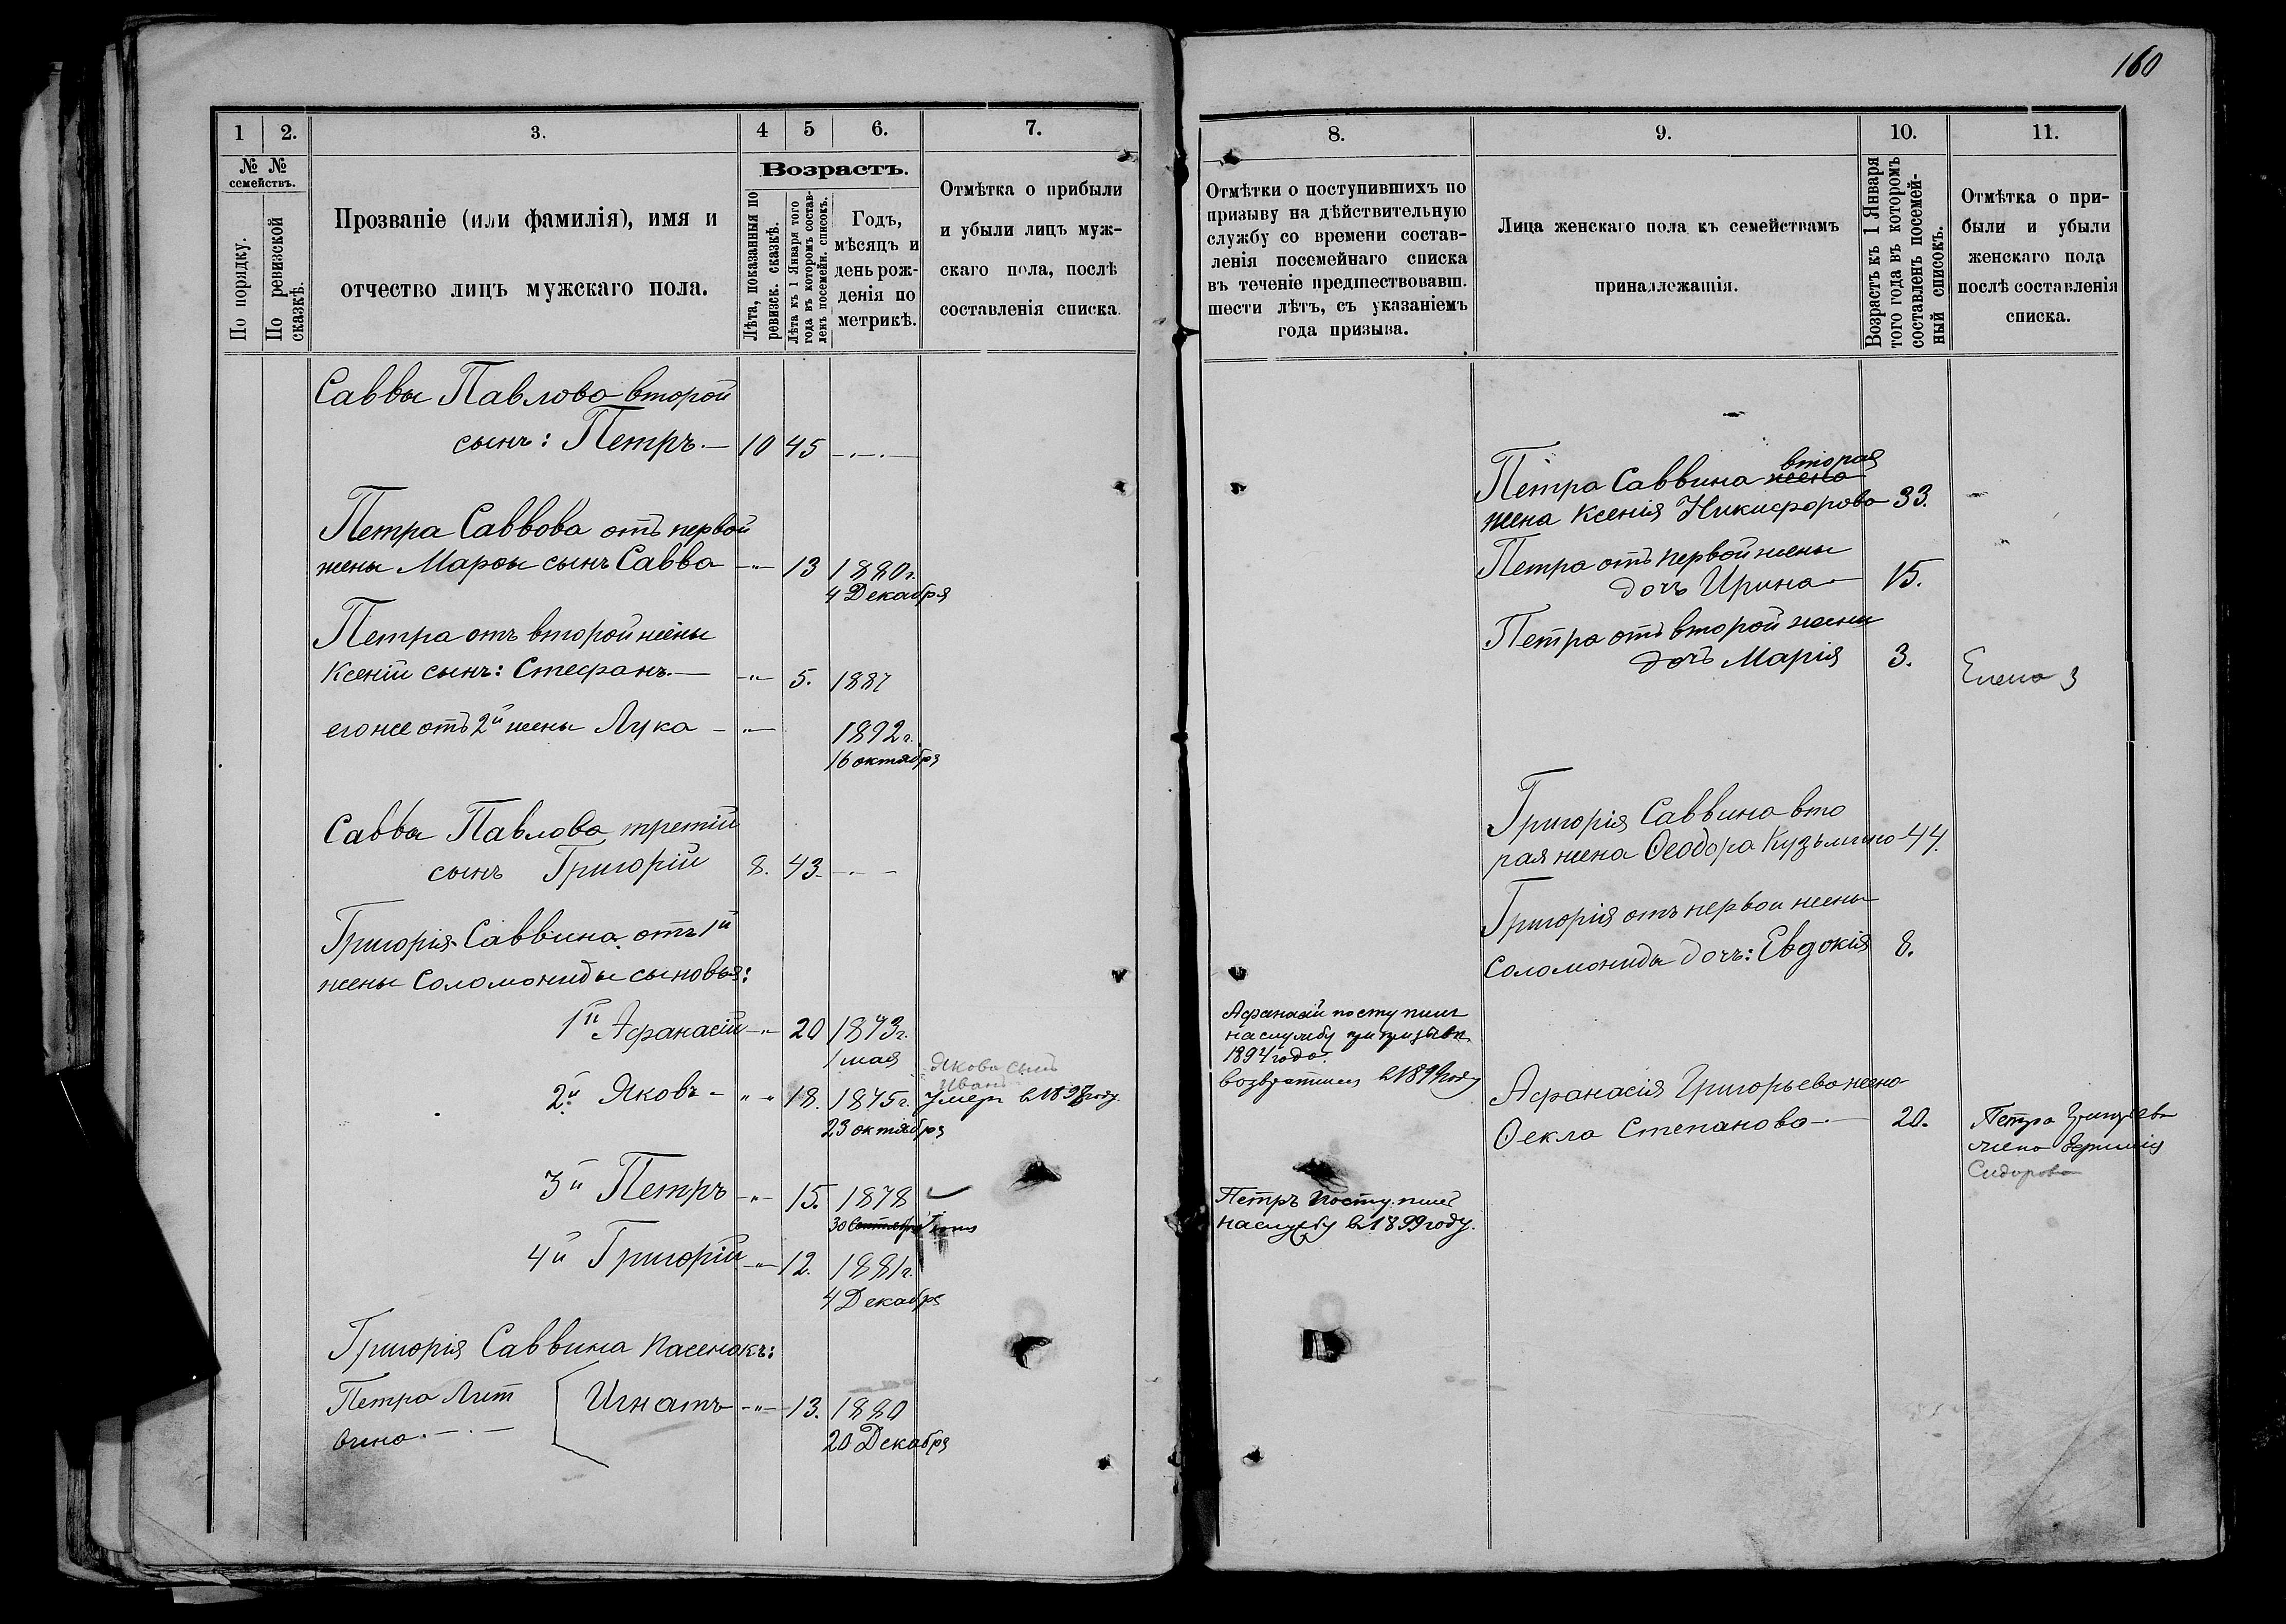 160
1
2.
3.
4
5
6.
7.
№ №
семействъ.
По порядку.
По ревизской
сказкѣ.
Прозваніе (или фамилія), имя и
отчество лицъ мужскаго пола.
Возрастъ.
Лѣта, показанныя по
ревизск. сказкѣ.
Лѣта къ 1 Января того
года въ которомъ состав-
ленъ посемейн. списокъ.
Годъ,
мѣсяцъ и
день рож-
денія по
метрикѣ.
Отмѣтка о прибыли
и убыли лицъ муж-
скаго пола, послѣ
составленія списка.
Саввы Павлова второй
сынъ: Петръ.— 10 45 —.—.—
Петра Саввова отъ первой
жены Марѳы сынъ Савва —"— 13 1880г.
4 Декабря
Петра отъ второй жены
Ксеніи сынъ: Стефанъ.— —"— 5. 1887
его же отъ 2й жены Лука —"— 1892г.
16 октября
Саввы Павлова третій
сынъ Григорій 8. 43. —.—
Григорія Саввина отъ 1й
жены Соломониды сыновья:
1й Афанасій —"— 20 1873г.
1 мая
Якова сынъ
Иванъ
2й Яковъ — " " 18. 1875г. умеръ в 1898 году.
23 октября
3й Петръ —"— 15. 1878
30 Сентября
4й Григорій —"— 12. 1881г.
4 Декабря
Григорія Саввина пасенокъ:
Петра Лит
вина.—.— Игнатъ —"— 13. 1880
20 Декабря
8.
9.
10.
11.
Отмѣтки о поступившихъ по
призыву на дѣйствительную
службу со времени состав-
ленія посемейнаго списка
въ теченіе предшествовавш.
шести лѣтъ, съ указаніемъ
года призыва.
Лица женскаго пола къ семействамъ
принадлежащія.
Возрастъ къ 1 Января
того года въ которомъ
составленъ посемей-
ный списокъ.
Отмѣтка о при-
были и убыли
женскаго пола
послѣ составленія
списка.
вторая
Петра Саввина жена
жена Ксенія Никифорова 33.
Петра отъ первой жены
дочь Ирина — 15.
Петра отъ второй жены
дочь Марія 3.
Елена 3
Григорія Саввина вто
рая жена Ѳеодора Кузьмина 44.
Григорія отъ первой жены
Соломониды дочь: Евдокія 8.
Афанасій поступилъ
на службу при призывѣ
1894 года.
возвратился в 1899 году
Афанасія Григорьева жена
Ѳекла Степанова.— 20.
Петра Григорьева
жена
Сидорова
Петръ поступилъ
на службу в 1899 году.